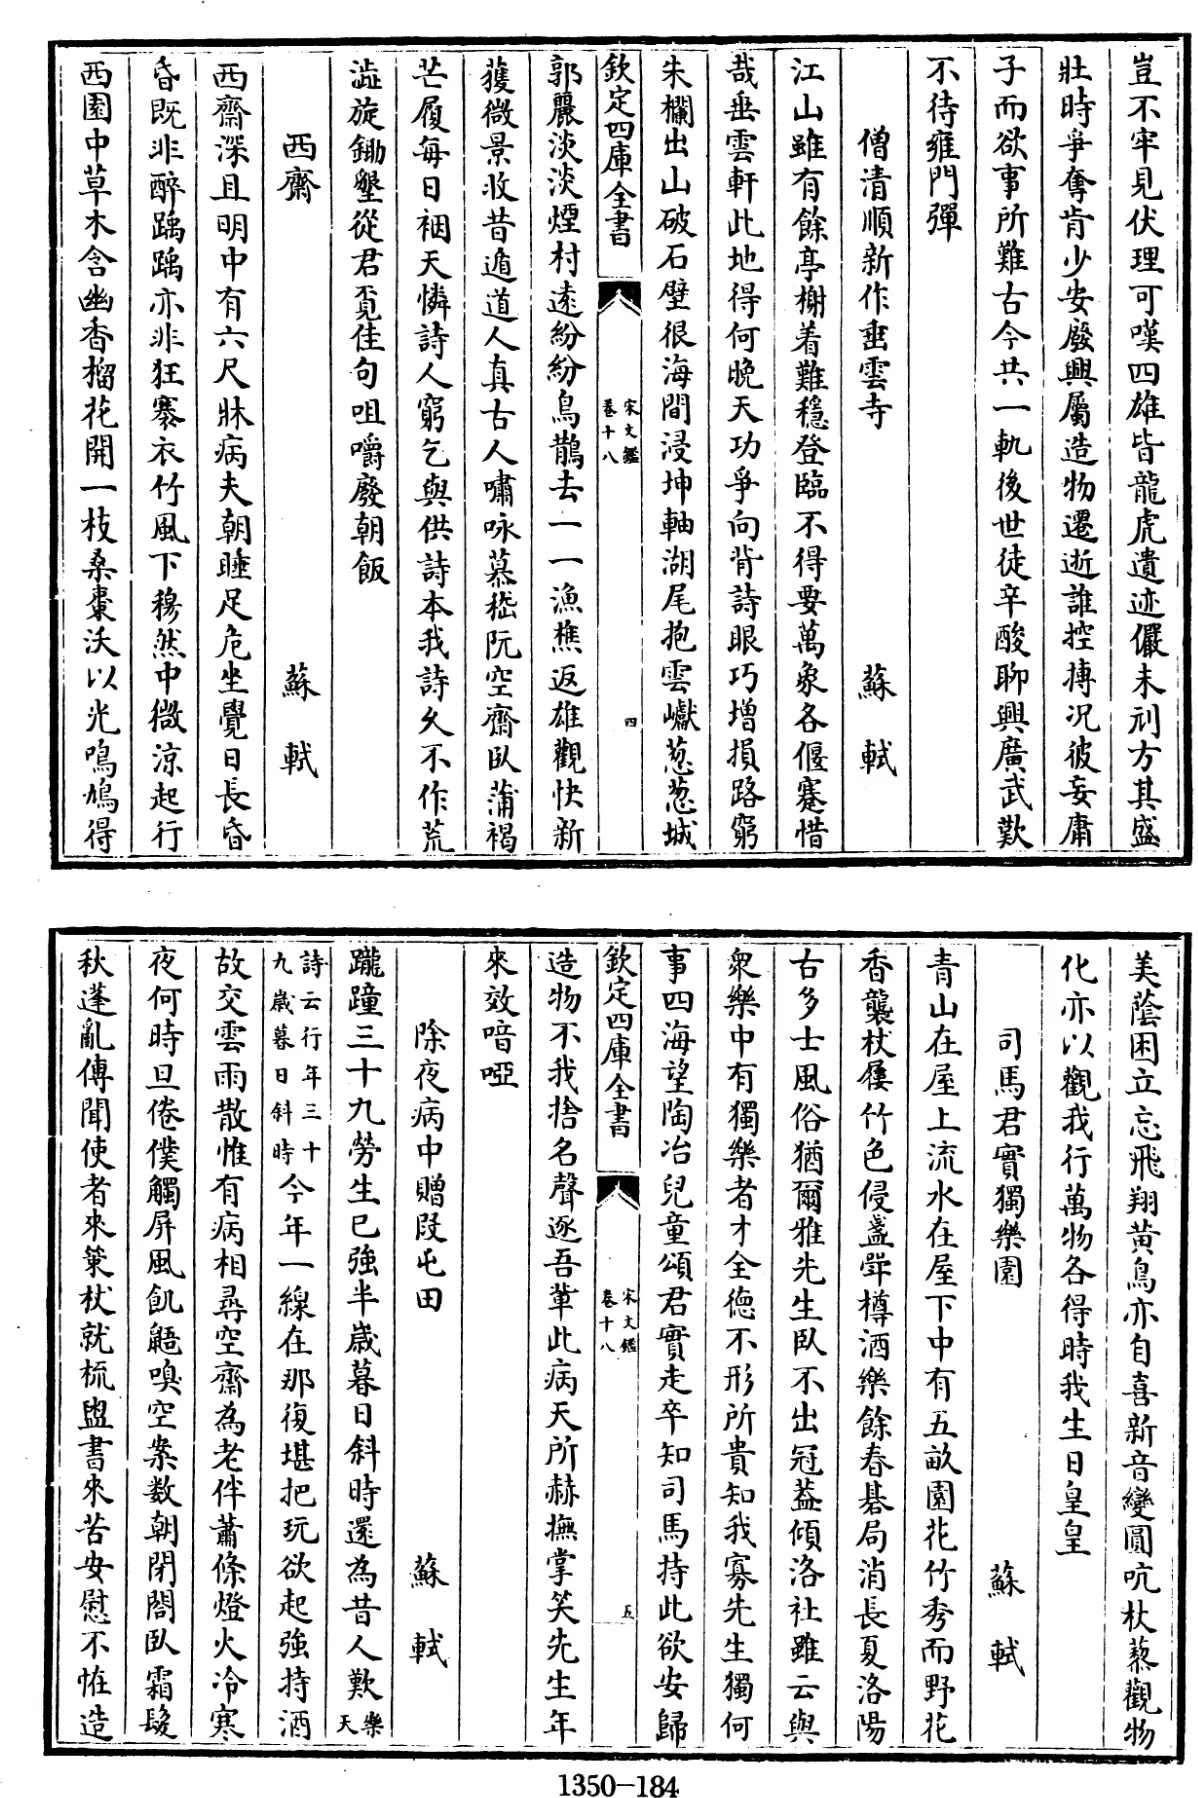 豈不牢見伏理可嘆四雄皆龍虎遺迹儼未刓方其盛
壯時爭奪肯少安廢興屬造物遷逝誰控摶况彼妄庸
子而欲事所難古今共一軌後世徒辛酸聊興廣武歎
不待雍門彈
僧清順新作垂雲寺 蘇軾
江山雖有餘亭榭着難穩登臨不得要萬象各偃蹇惜
哉垂雲軒此地得何晚天功爭向背詩眼巧增損路窮
朱欄出山破石壁很海間浸坤軸湖尾抱雲巘葱葱城
欽定四庫全書 宋文鑑 卷十八 四
郭麗淡淡煙村遠紛紛鳥鵲去一一漁樵返雄觀快新
獲微景收昔遁道人真古人嘯咏慕嵇阮空齋臥蒲褐
芒履每日裀天憐詩人窮乞與供詩本我詩久不作荒
澁旋鋤墾從君覔佳句咀嚼廢朝飯
西齋 蘇軾
西齋深且明中有六尺牀病夫朝睡足危坐覺日長昏
昏既非醉踽踽亦非狂褰衣竹風下穆然中微涼起行
西園中草木含幽香榴花開一枝桑棗沃以光鳴鳩得
美蔭困立忘飛翔黄鳥亦自喜新音變圓吭杖藜觀物
化亦以觀我行萬物各得時我生日皇皇
司馬君實獨樂園 蘇軾
青山在屋上流水在屋下中有五畝園花竹秀而野花
香襲杖屨竹色侵盞斝樽酒樂餘春棊局消長夏洛陽
古多士風俗猶爾雅先生臥不出冠葢傾洛社雖云與
衆樂中有獨樂者才全德不形所貴知我寡先生獨何
事四海望陶冶兒童頌君實走卒知司馬持此欲安歸
欽定四庫全書 宋文鑑 卷十八 五
造物不我捨名聲逐吾輩此病天所赫撫掌笑先生年
來效喑啞
除夜病中贈段屯田 蘇軾
蹝蹱三十九勞生已強半歲暮日斜時還為昔人歎樂天
詩云行年三十九歲暮日斜時今年一線在那復堪把玩欲起強持酒
故交雲雨散惟有病相尋空齋為老伴蕭條燈火冷寒
夜何時旦倦僕觸屏風飢鼯嗅空案數朝閉閤臥霜髮
秋蓬亂傳聞使者來䇿杖就梳盥書來苦安慰不恠造
1350-184